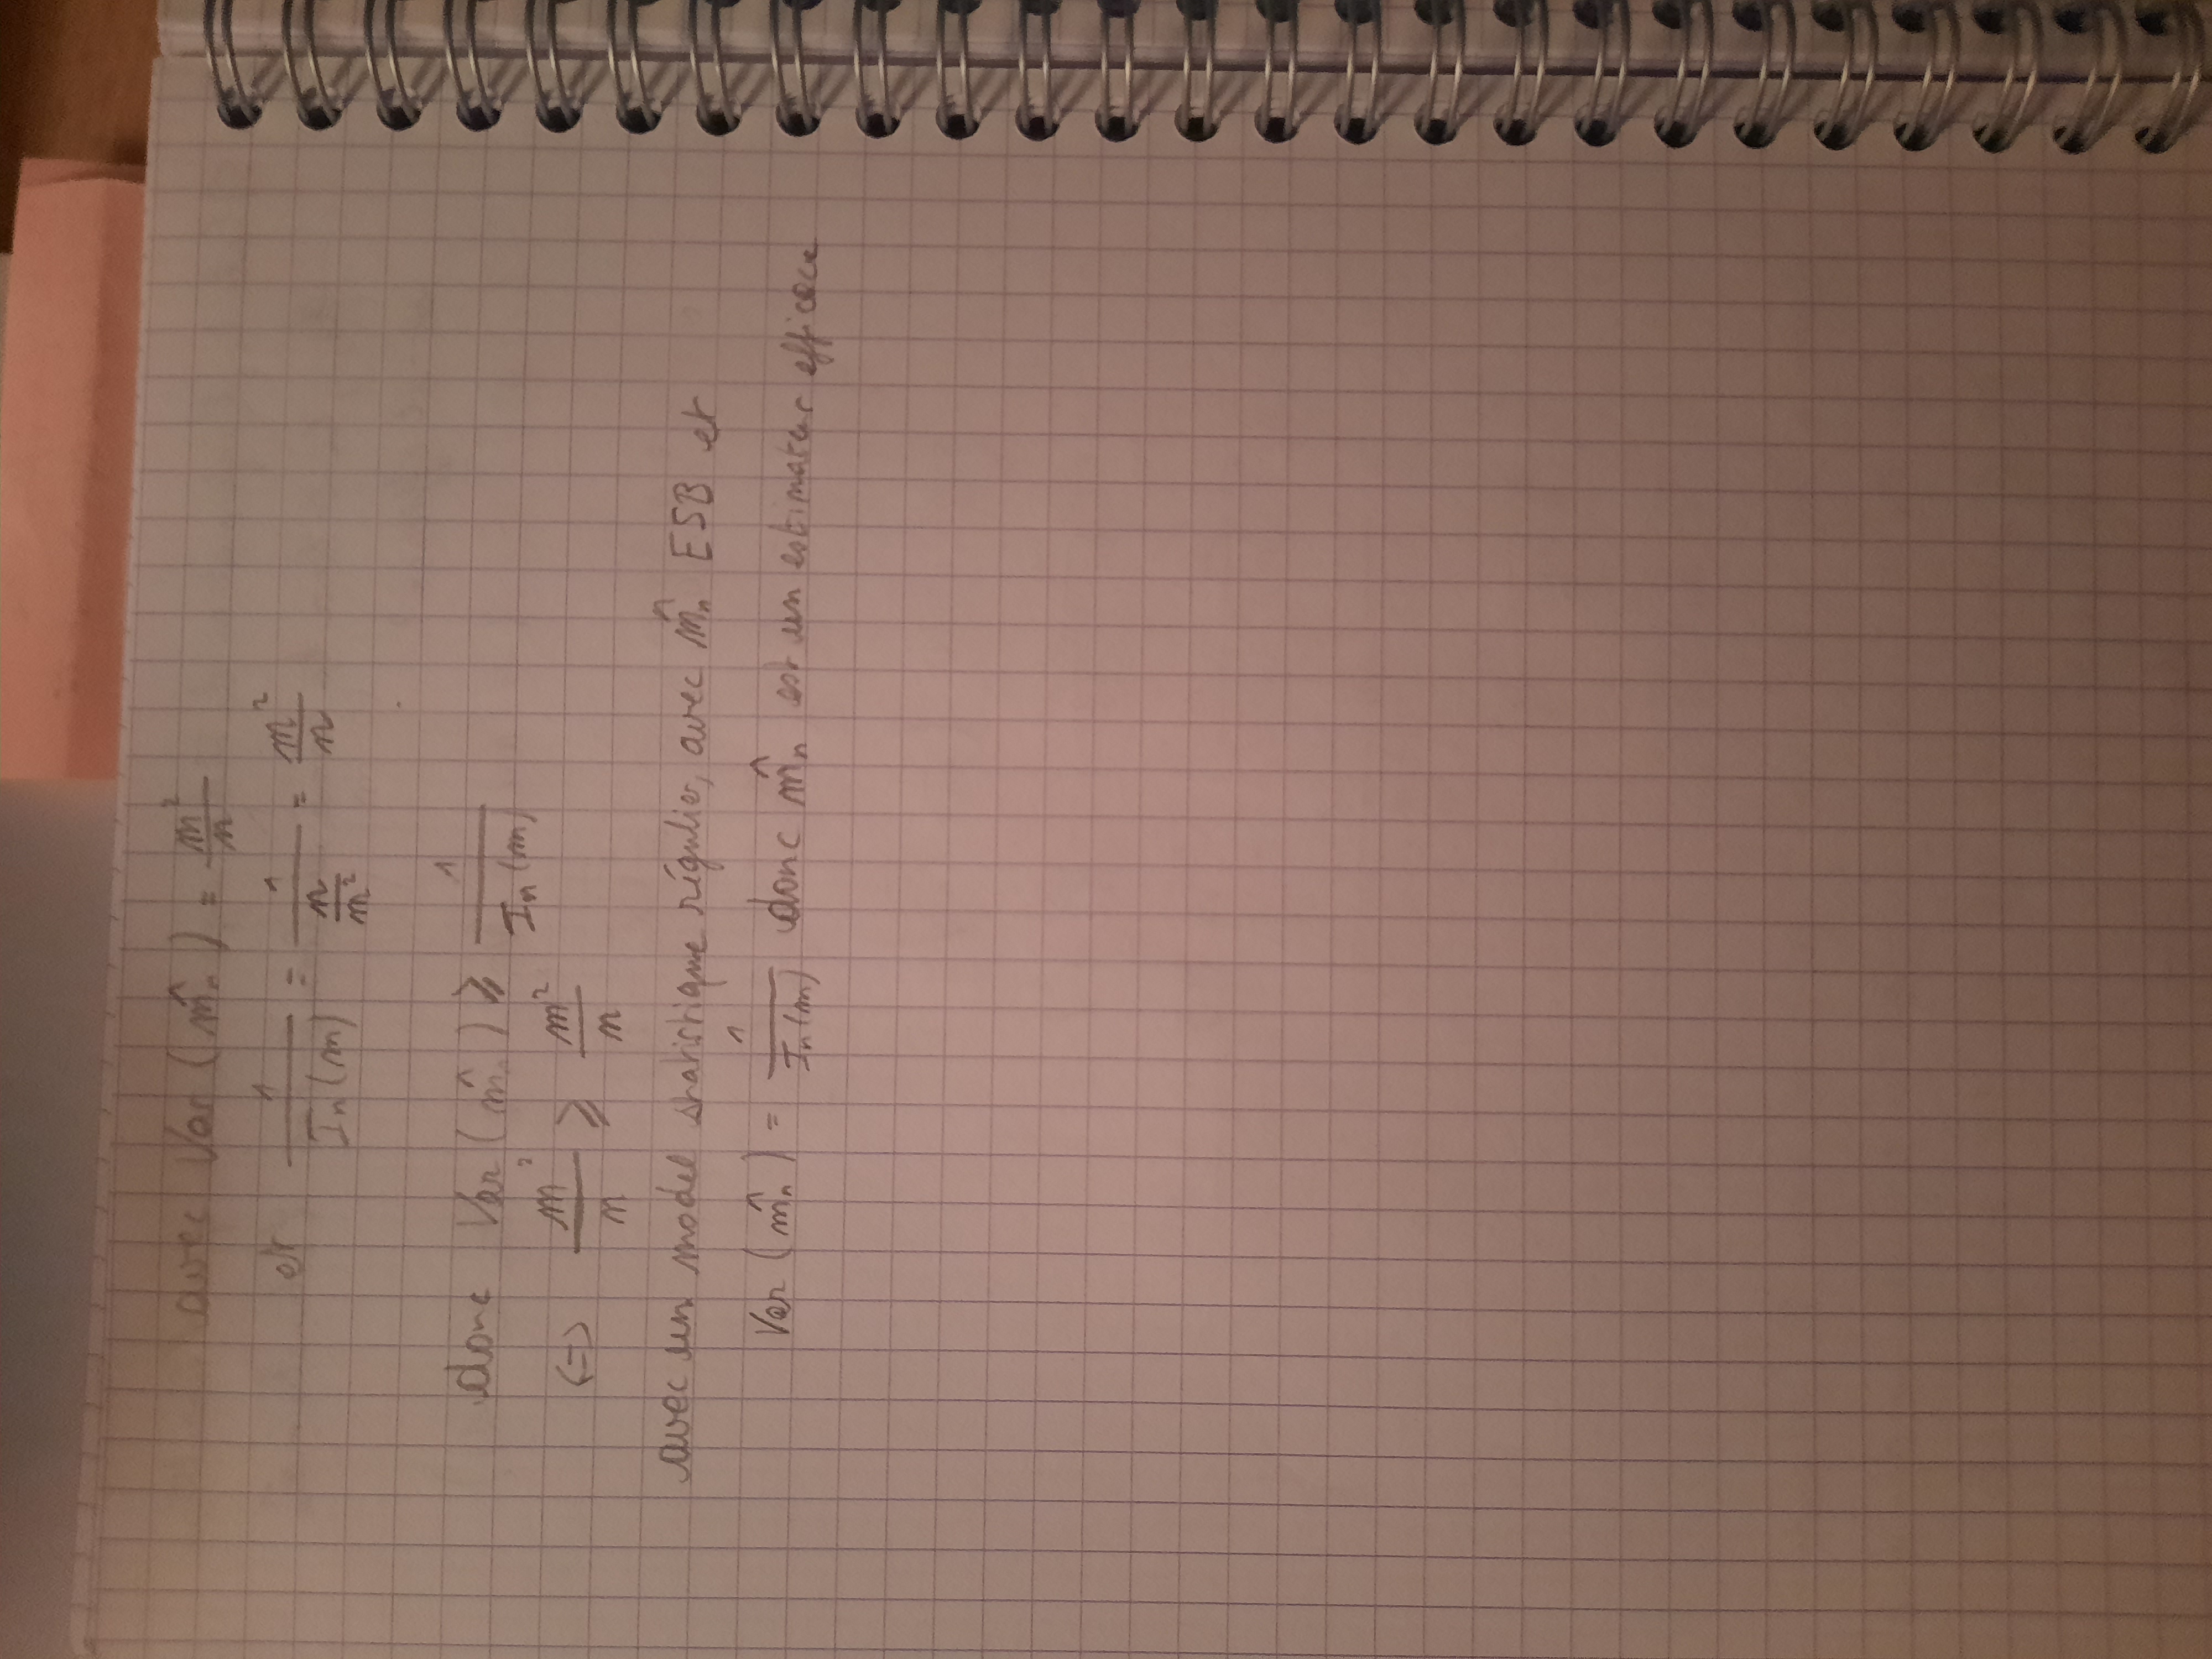 avec Var (m̂n) = m²/n
et 1/In(m) = 1/(n/m²) = m²/n
donc Var (m̂n) ⩾ 1/In(m)
<=> m²/n ⩾ m²/n
avec un model statistique régulier, avec m̂n ESB et
Var (m̂n) = 1/In(m) donc m̂n est un estimateur efficace